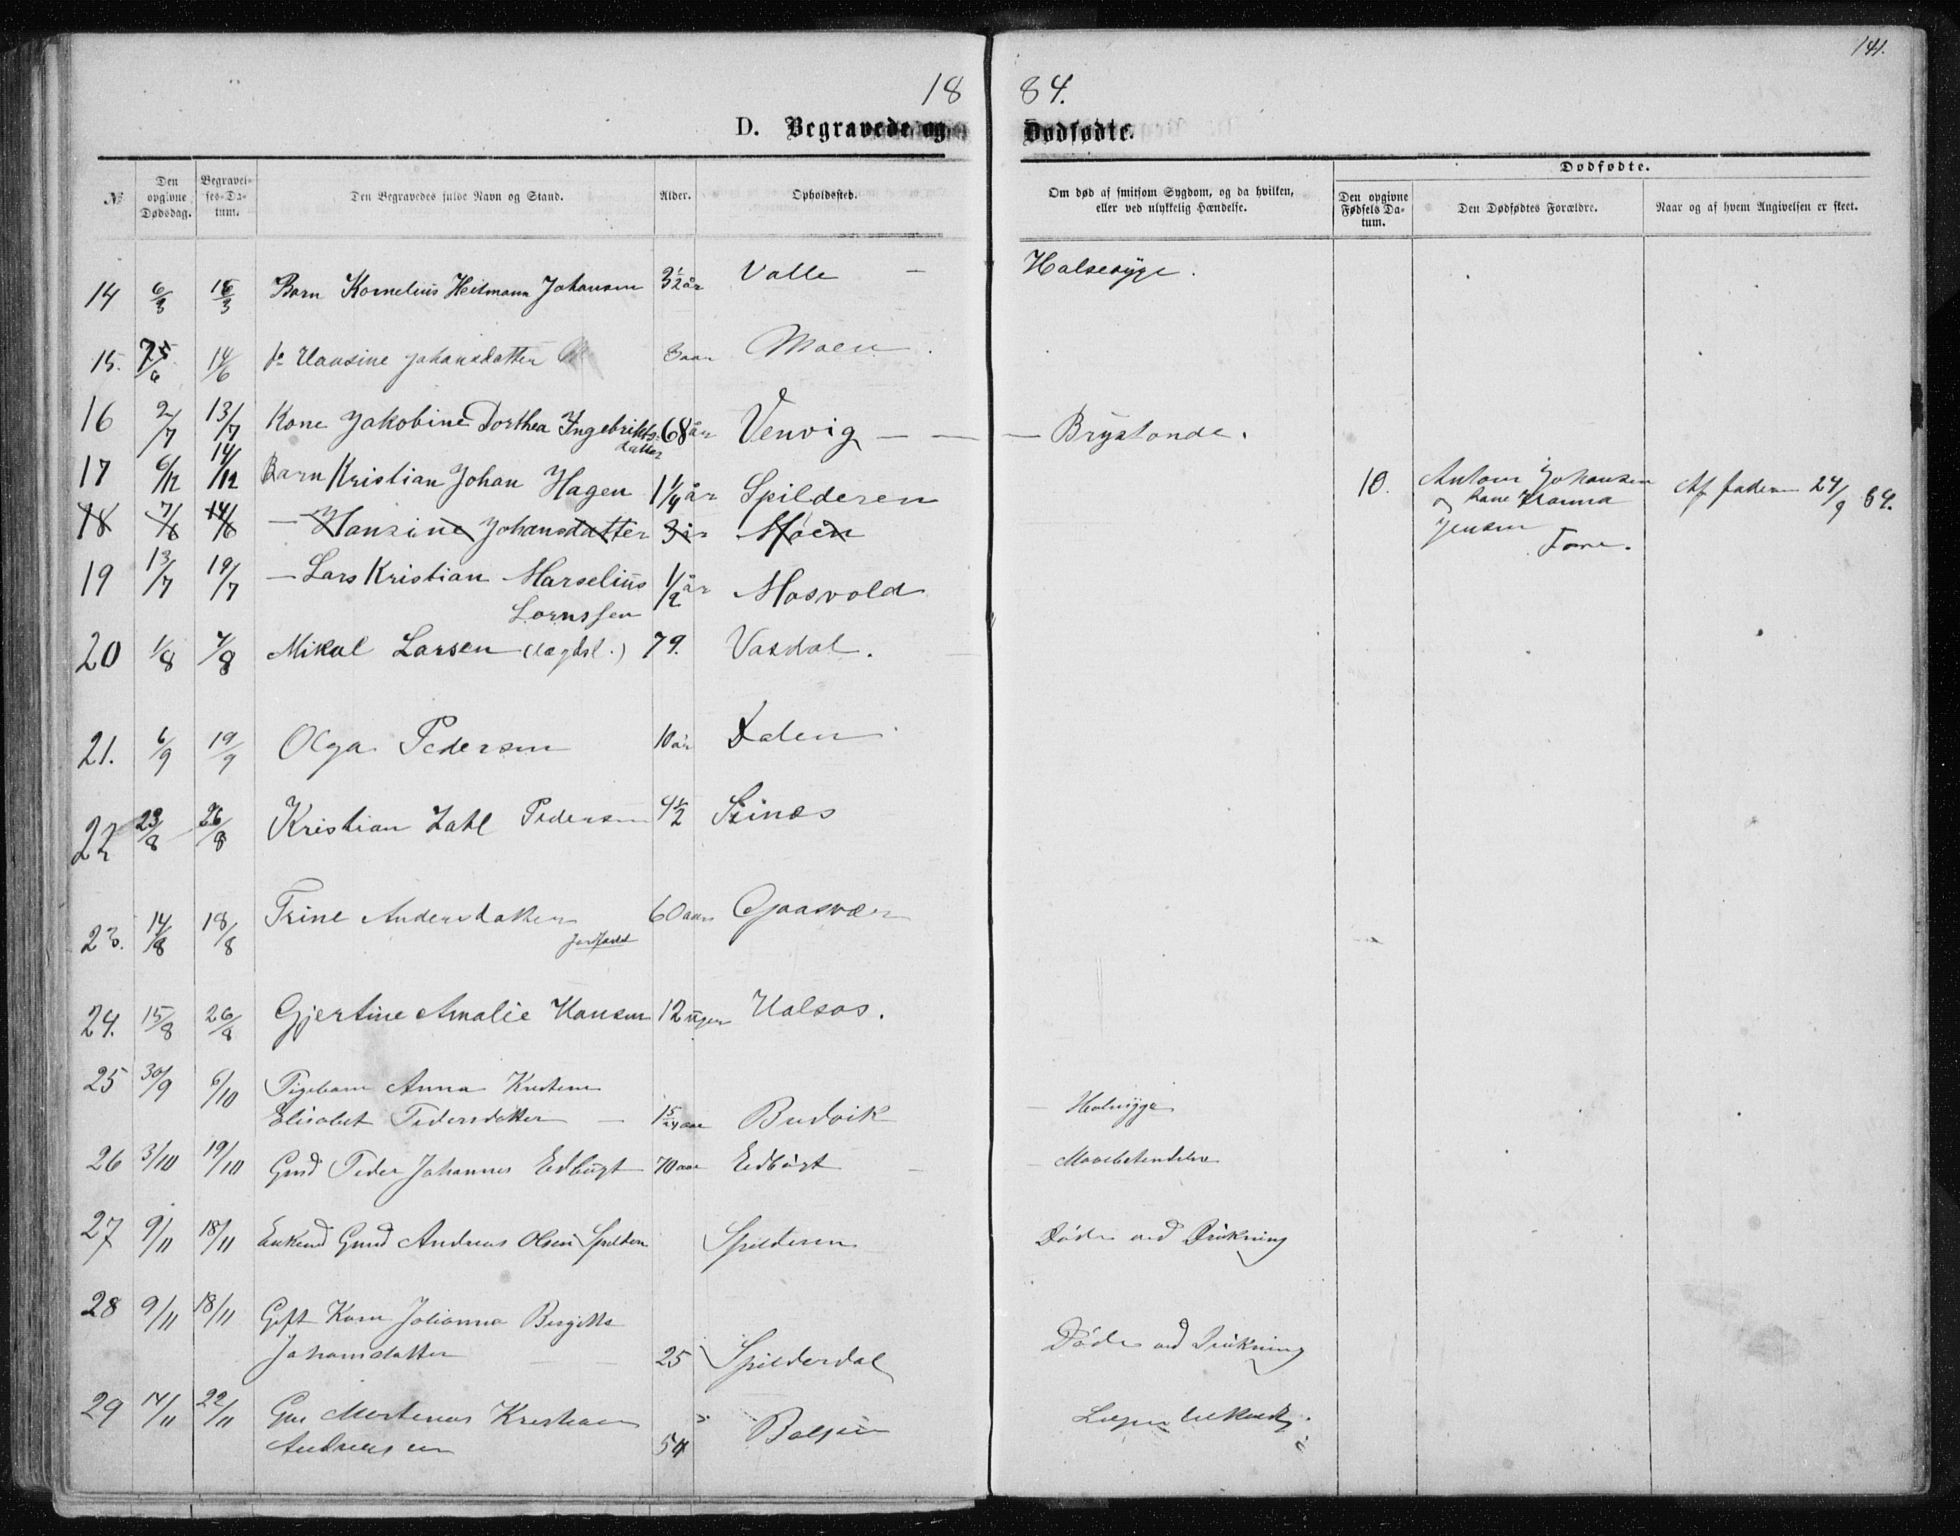 141.
18 84.
D. Begravede og Dødfødte.
Dødfødte.
№
Den opgivne Dødsdag.
Begravelses-Datum.
Den Begravedes fulde Navn og Stand.
Alder.
Opholdssted.
Om død af smitsom Sygdom, og da hvilken, eller ved ulykkelig Hændelse.
Den opgivne Fødsels Datum.
Den Dødfødtes Forældre.
Naar og af hvem Angivelsen er skeet.
14 6/3 15/3 Barn Kornelius Heitmann Johansen 3 1/2 år Valle — Halsesyge.
15. 7/6 14/6 do Hansine Johansdatter 3 aar Moen
16 2/7 13/7 Kone Jakobine Dorthea Ingebrikts- 68 år Venvig — — — Brystonde.
datter
17 6/12 14/12 Barn Kristian Johan Hagen 1 1/4 år Spilderen
10. Antoni Johansen Af faderen 24/9 84.
og kone Hanna
Jensen
Fore.
18 7/6 14/6 — Hansine Johansdatter 3 år Moen
19 13/7 19/7 — Lars Kristian Marselius 1/2 år Mosvold
Lornssen
20 1/8 7/8 Mikal Larsen (Lægdsl.) 79. Vasdal.
21. 6/9 19/9 Olga Pedersen 10 år Dalen
22 23/8 26/8 Kristian Zahl Pedersen 4 1/2
23. 14/8 18/8 Trine Andersdatter 60 aar Gaasvær
24. 15/8 26/8 Gjertine Amalie Hansen 12 uger Halsos.
25 30/9 6/10 Pigebarn Anna Kristine
Elisabet Pedersdatter — 15/24 aar Budvik — Halssyge
26 3/10 19/10 Gmd Peder Johannes Edbugt 70 aar Edbugt — — Mavebetendelse
27 9/11 18/11 Enkemd Gmd Andreas Olsen Spilderen Spilderen Døde ved Drukning
28 9/11 18/11 Gift Kone Johanna Birgitte
Johansdatter — — 25 Spilderdal Døde ved Drukning
29 14/11 22/11 Gm Mortenus Kristian
Andreassen 54